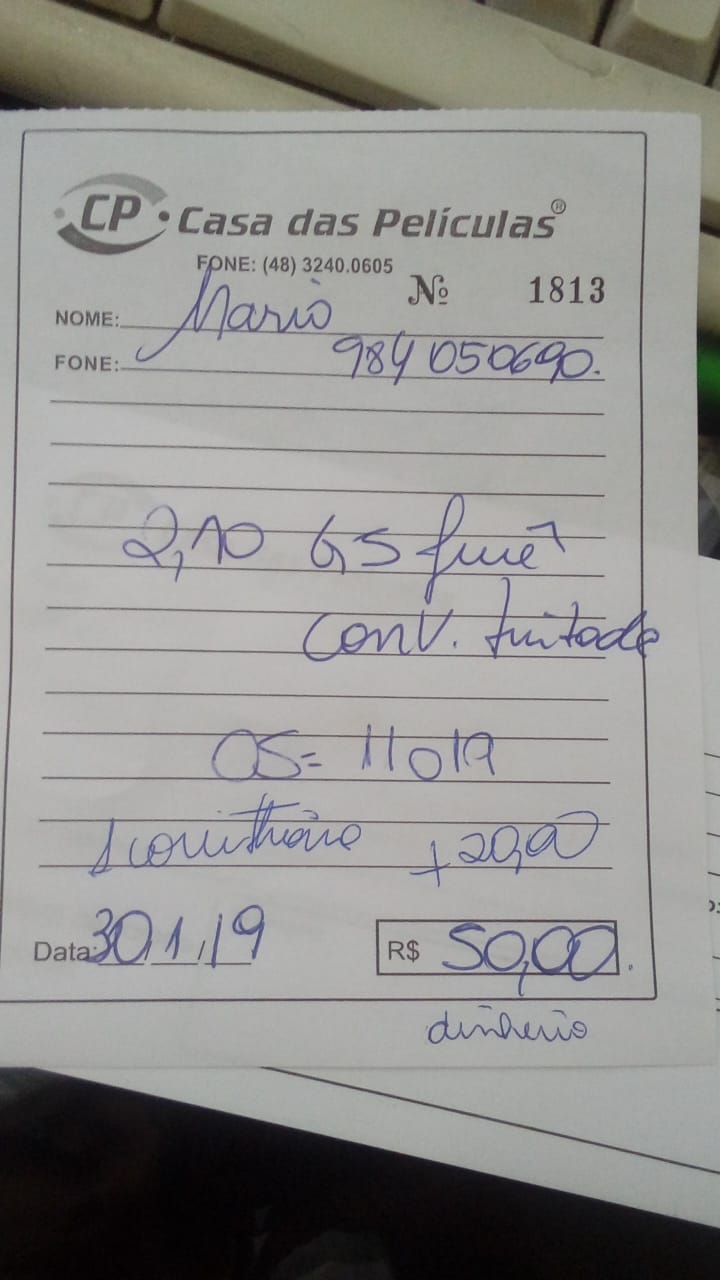 CP • Casa das Películas®
FONE: (48) 3240.0605
Nº 1813
NOME: Mario
FONE: 984 050690.
2,10 G5 fumê
conv.
OS= 11019
1 +20,00
Data: 30/1/19
R$ 50,00.
dinheiro